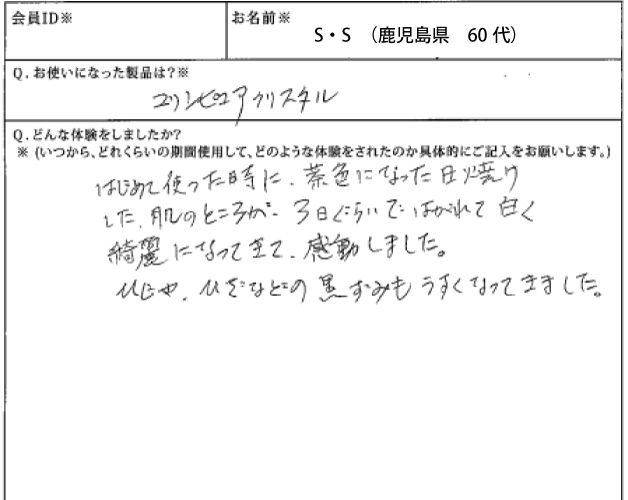 会員ID※
お名前※
S・S （鹿児島県　60代）
Q. お使いになった製品は?※
ユリンピュアクリスタル
Q. どんな体験をしましたか?
※ (いつから、どれくらいの期間使用して、どのような体験をされたのか具体的にご記入をお願いします。)
はじめて使った時に、茶色になった日焼け
した、肌のところが、3日ぐらいではがれて白く
綺麗になってきて、感動しました。
ひじや、ひざなどの黒ずみもうすくなってきました。